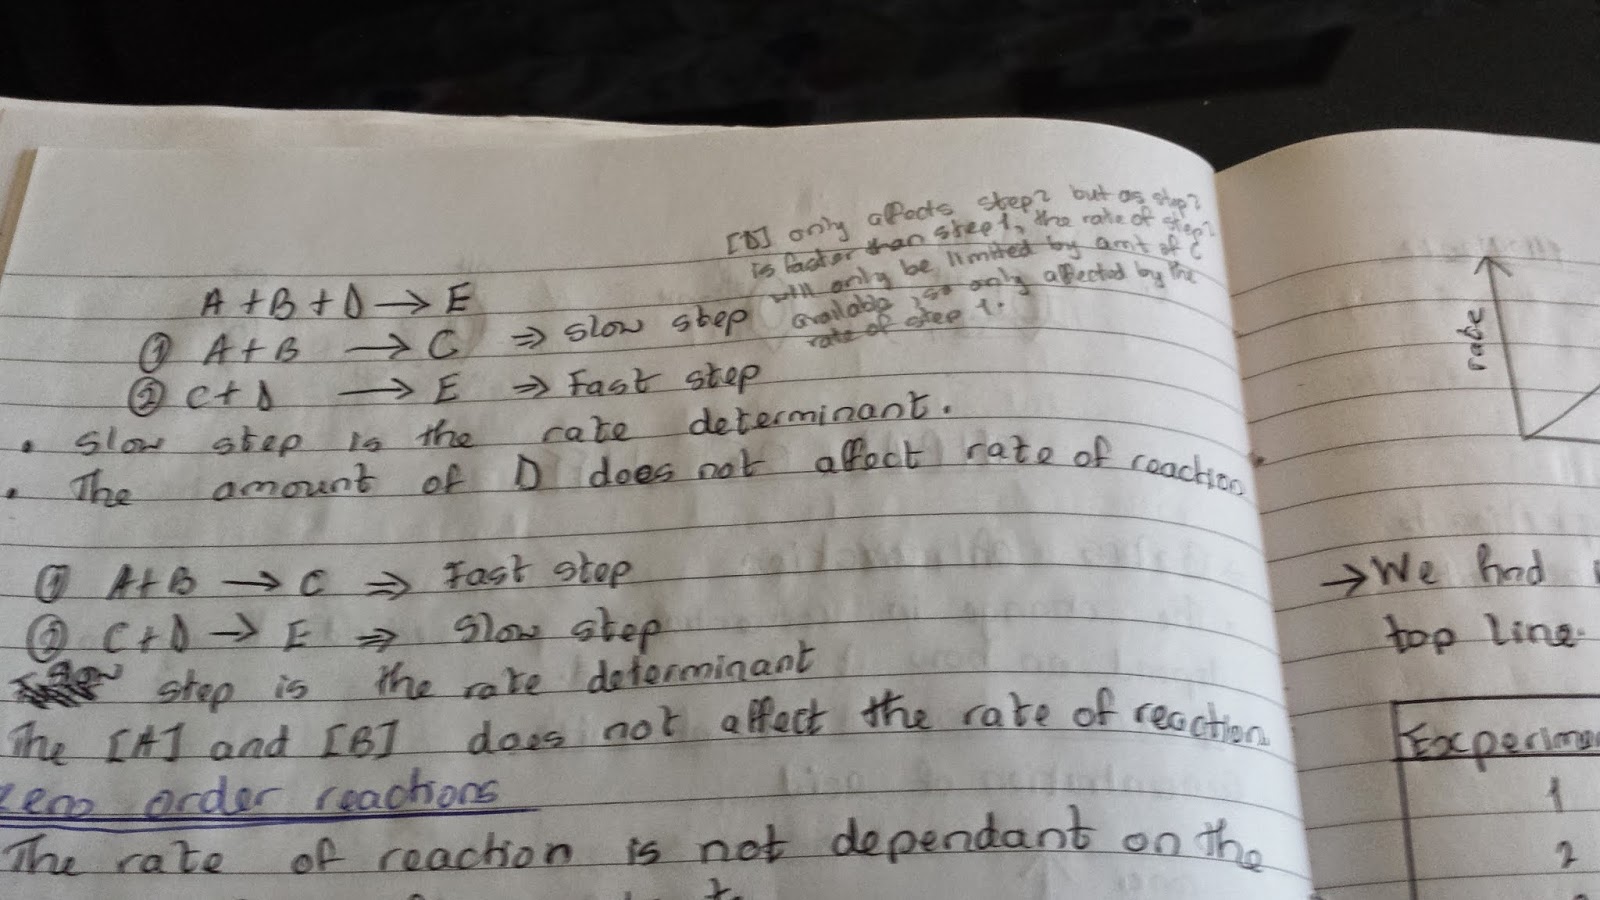 [D] only affects step 2 but as step 2
is faster than step 1, the rate of step 2
will only be limited by amt of C
available, so only affected by the
rate of step 1.
A + B + D → E
① A + B → C ⇒ slow step
② C + D → E ⇒ Fast step
• Slow step is the rate determinant.
• The amount of D does not affect rate of reaction
① A + B → C ⇒ Fast step
② C + D → E ⇒ Slow step
slow step is the rate determinant
The [A] and [B] does not affect the rate of reaction
Zero order reactions
The rate of reaction is not dependant on the
rate
→ We find
top line.
Experime
1
2